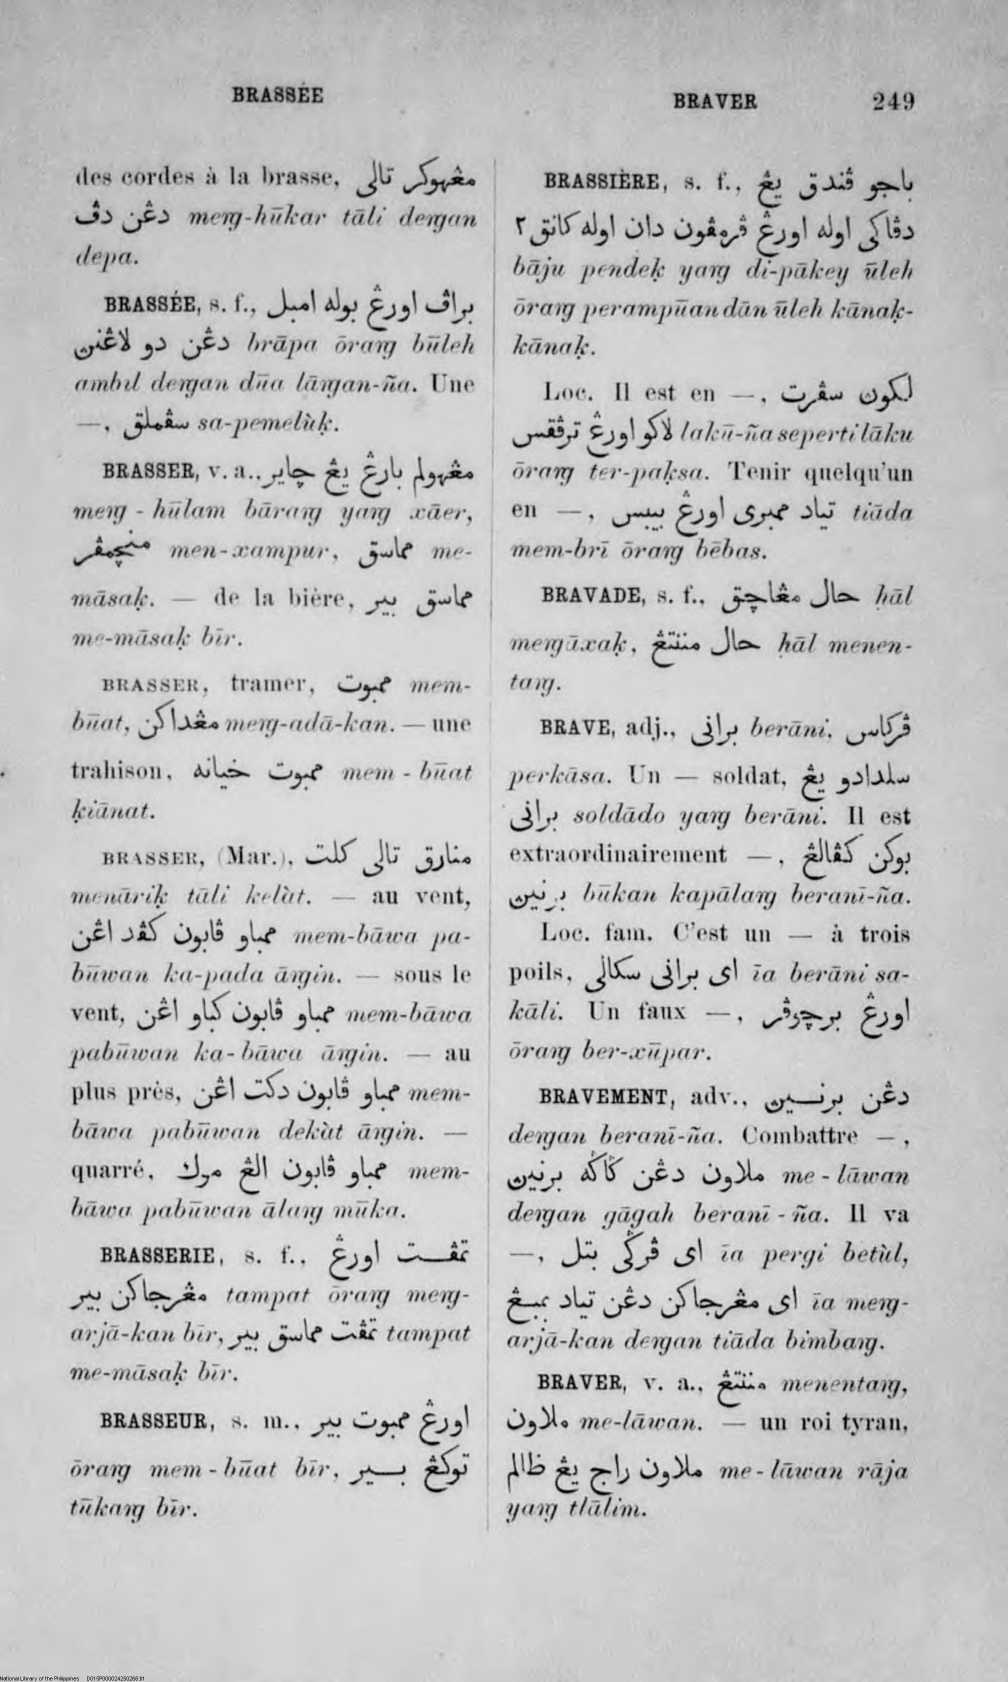 BRASSÉE
BRAVER 249
des cordes à la brasse, مڠهوكر تالى
دڠن دڤ meng-hūkar tāli dengan
depa.
BRASSÉE, s. f., براڤ اورڠ بوله امبل
دڠن دو لاڠنن brāpa ōrang būleh
ambil dengan dūa lāngan-ña. Une
—, سڤملق sa-pemelùḳ.
BRASSER, v. a., مڠهولم بارڠ يڠ چاير
meng-hūlam bārang yang xāer,
منچمڤر men-xampur, مماسق me-
māsaḳ. — de la bière, مماسق بير
me-māsaḳ bīr.
BRASSER, tramer, ممبوت mem-
būat, مڠداكن meng-adā-kan. — une
trahison, ممبوت خيانه mem-būat
ḳiānat.
BRASSER, (Mar.), منارق تالى كلت
menāriḳ tāli kelùt. — au vent,
ممباو ڤابون كڤد اڠن mem-bāwa pa-
būwan ka-pada āngin. — sous le
vent, ممباو ڤابون كباو اڠن mem-bāwa
pabūwan ka-bāwa āngin. — au
plus près, ممباو ڤابون دكت اڠن mem-
bāwa pabūwan dekùt āngin. —
quarré, ممباو ڤابون الڠ موك mem-
bāwa pabūwan ālang mūka.
BRASSERIE, s. f., تمڤت اورڠ
مڠرجاكن بير tampat ōrang meng-
arjā-kan bīr, تمڤت مماسق بير tampat
me-māsaḳ bīr.
BRASSEUR, s. m., اورڠ ممبوت بير
ōrang mem-būat bīr, توكڠ بير
tūkang bīr.
BRASSIÈRE, s. f., باجو ڤندق يڠ
دڤاكى اوله اورڠ ڤرمڤون دان اوله كانق ٢
bāju pendeḳ yang di-pākey ūleh
ōrang perampūan dān ūleh kānaḳ-
kānaḳ.
Loc. Il est en —, لكون سڤرت
لاكو اورڠ ترڤقس lakū-ña seperti lāku
ōrang ter-paḳsa. Tenir quelqu'un
en —, تياد ممبرى اورڠ بيبس tiāda
mem-brī ōrang bēbas.
BRAVADE, s. f., حال مڠاچق ḥāl
mengāxaḳ, حال مننتڠ ḥāl menen-
tang.
BRAVE, adj., برانى berāni, ڤركاس
perkāsa. Un — soldat, سلدادو يڠ
برانى soldādo yang berāni. Il est
extraordinairement —, بوكن كڤالڠ
برنين būkan kapālang beranī-ña.
Loc. fam. C'est un — à trois
poils, اى برانى سكالى īa berāni sa-
kāli. Un faux —, اورڠ برچوڤر
ōrang ber-xūpar.
BRAVEMENT, adv., دڠن برنين
dengan beranī-ña. Combattre —,
ملاون دڠن ݢاݢه برنين me-lāwan
dengan gāgah beranī-ña. Il va
—, اى ڤرݢى بتل īa pergi betùl,
اى مڠرجاكن دڠن تياد بمبڠ īa meng-
arjā-kan dengan tiāda bimbang.
BRAVER, v. a., مننتڠ menentang,
ملاون me-lāwan. — un roi tyran,
ملاون راج يڠ ظالم me-lāwan rāja
yang tlālim.
National Library of the Philippines